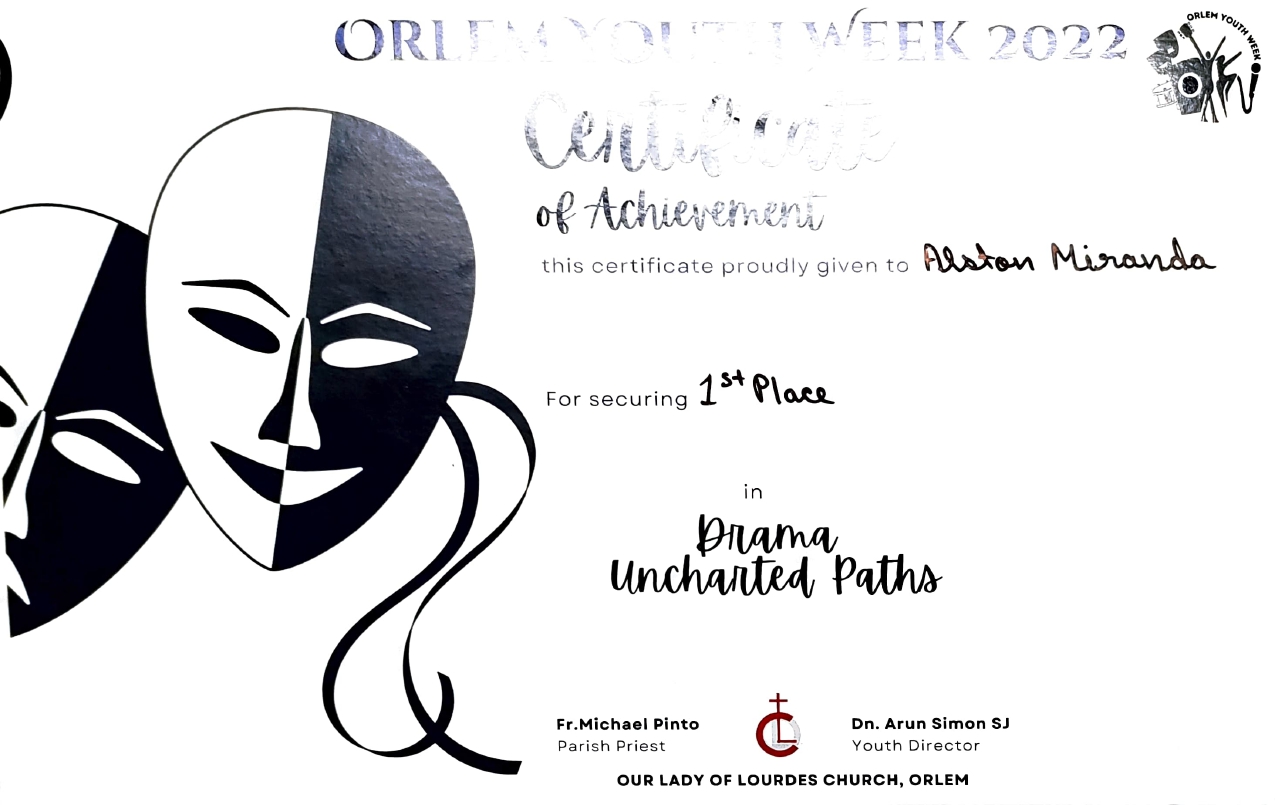 ORLEM YOUTH WEEK 2022
ORLEM YOUTH WEEK
Certificate
of Achievement
this certificate proudly given to Alston Miranda
For securing 1st Place
in
Drama
Uncharted Paths
Fr.Michael Pinto
Parish Priest
Dn. Arun Simon SJ
Youth Director
OUR LADY OF LOURDES CHURCH, ORLEM